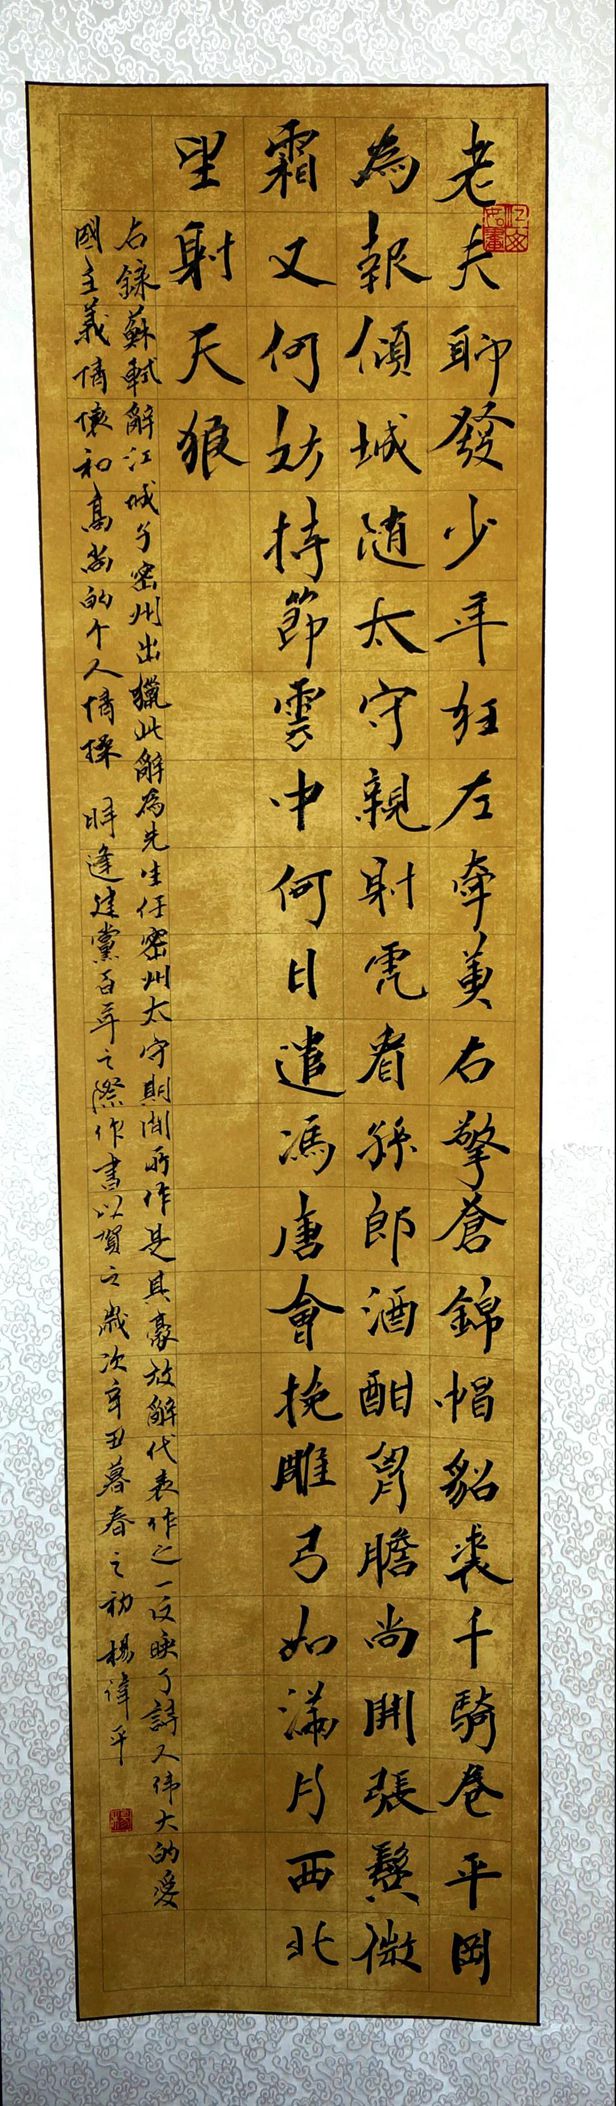 老夫聊發少年狂左牽黃右擎蒼錦帽貂裘千騎卷平岡
為報傾城随太守親射虎看孫郎酒酣胷膽尚開張鬢微
霜又何妨持節雲中何日遣馮唐會挽雕弓如滿月西北
望射天狼
右錄蘇軾辭江城子密州出獵此辭為先生任密州太守期間所作是其豪放辭代表作之一反映了詩人伟大的愛
國主義情懷和高尚的个人情操 时逢建黨百年之際作書以賀之歲次辛丑暮春之初楊偉平